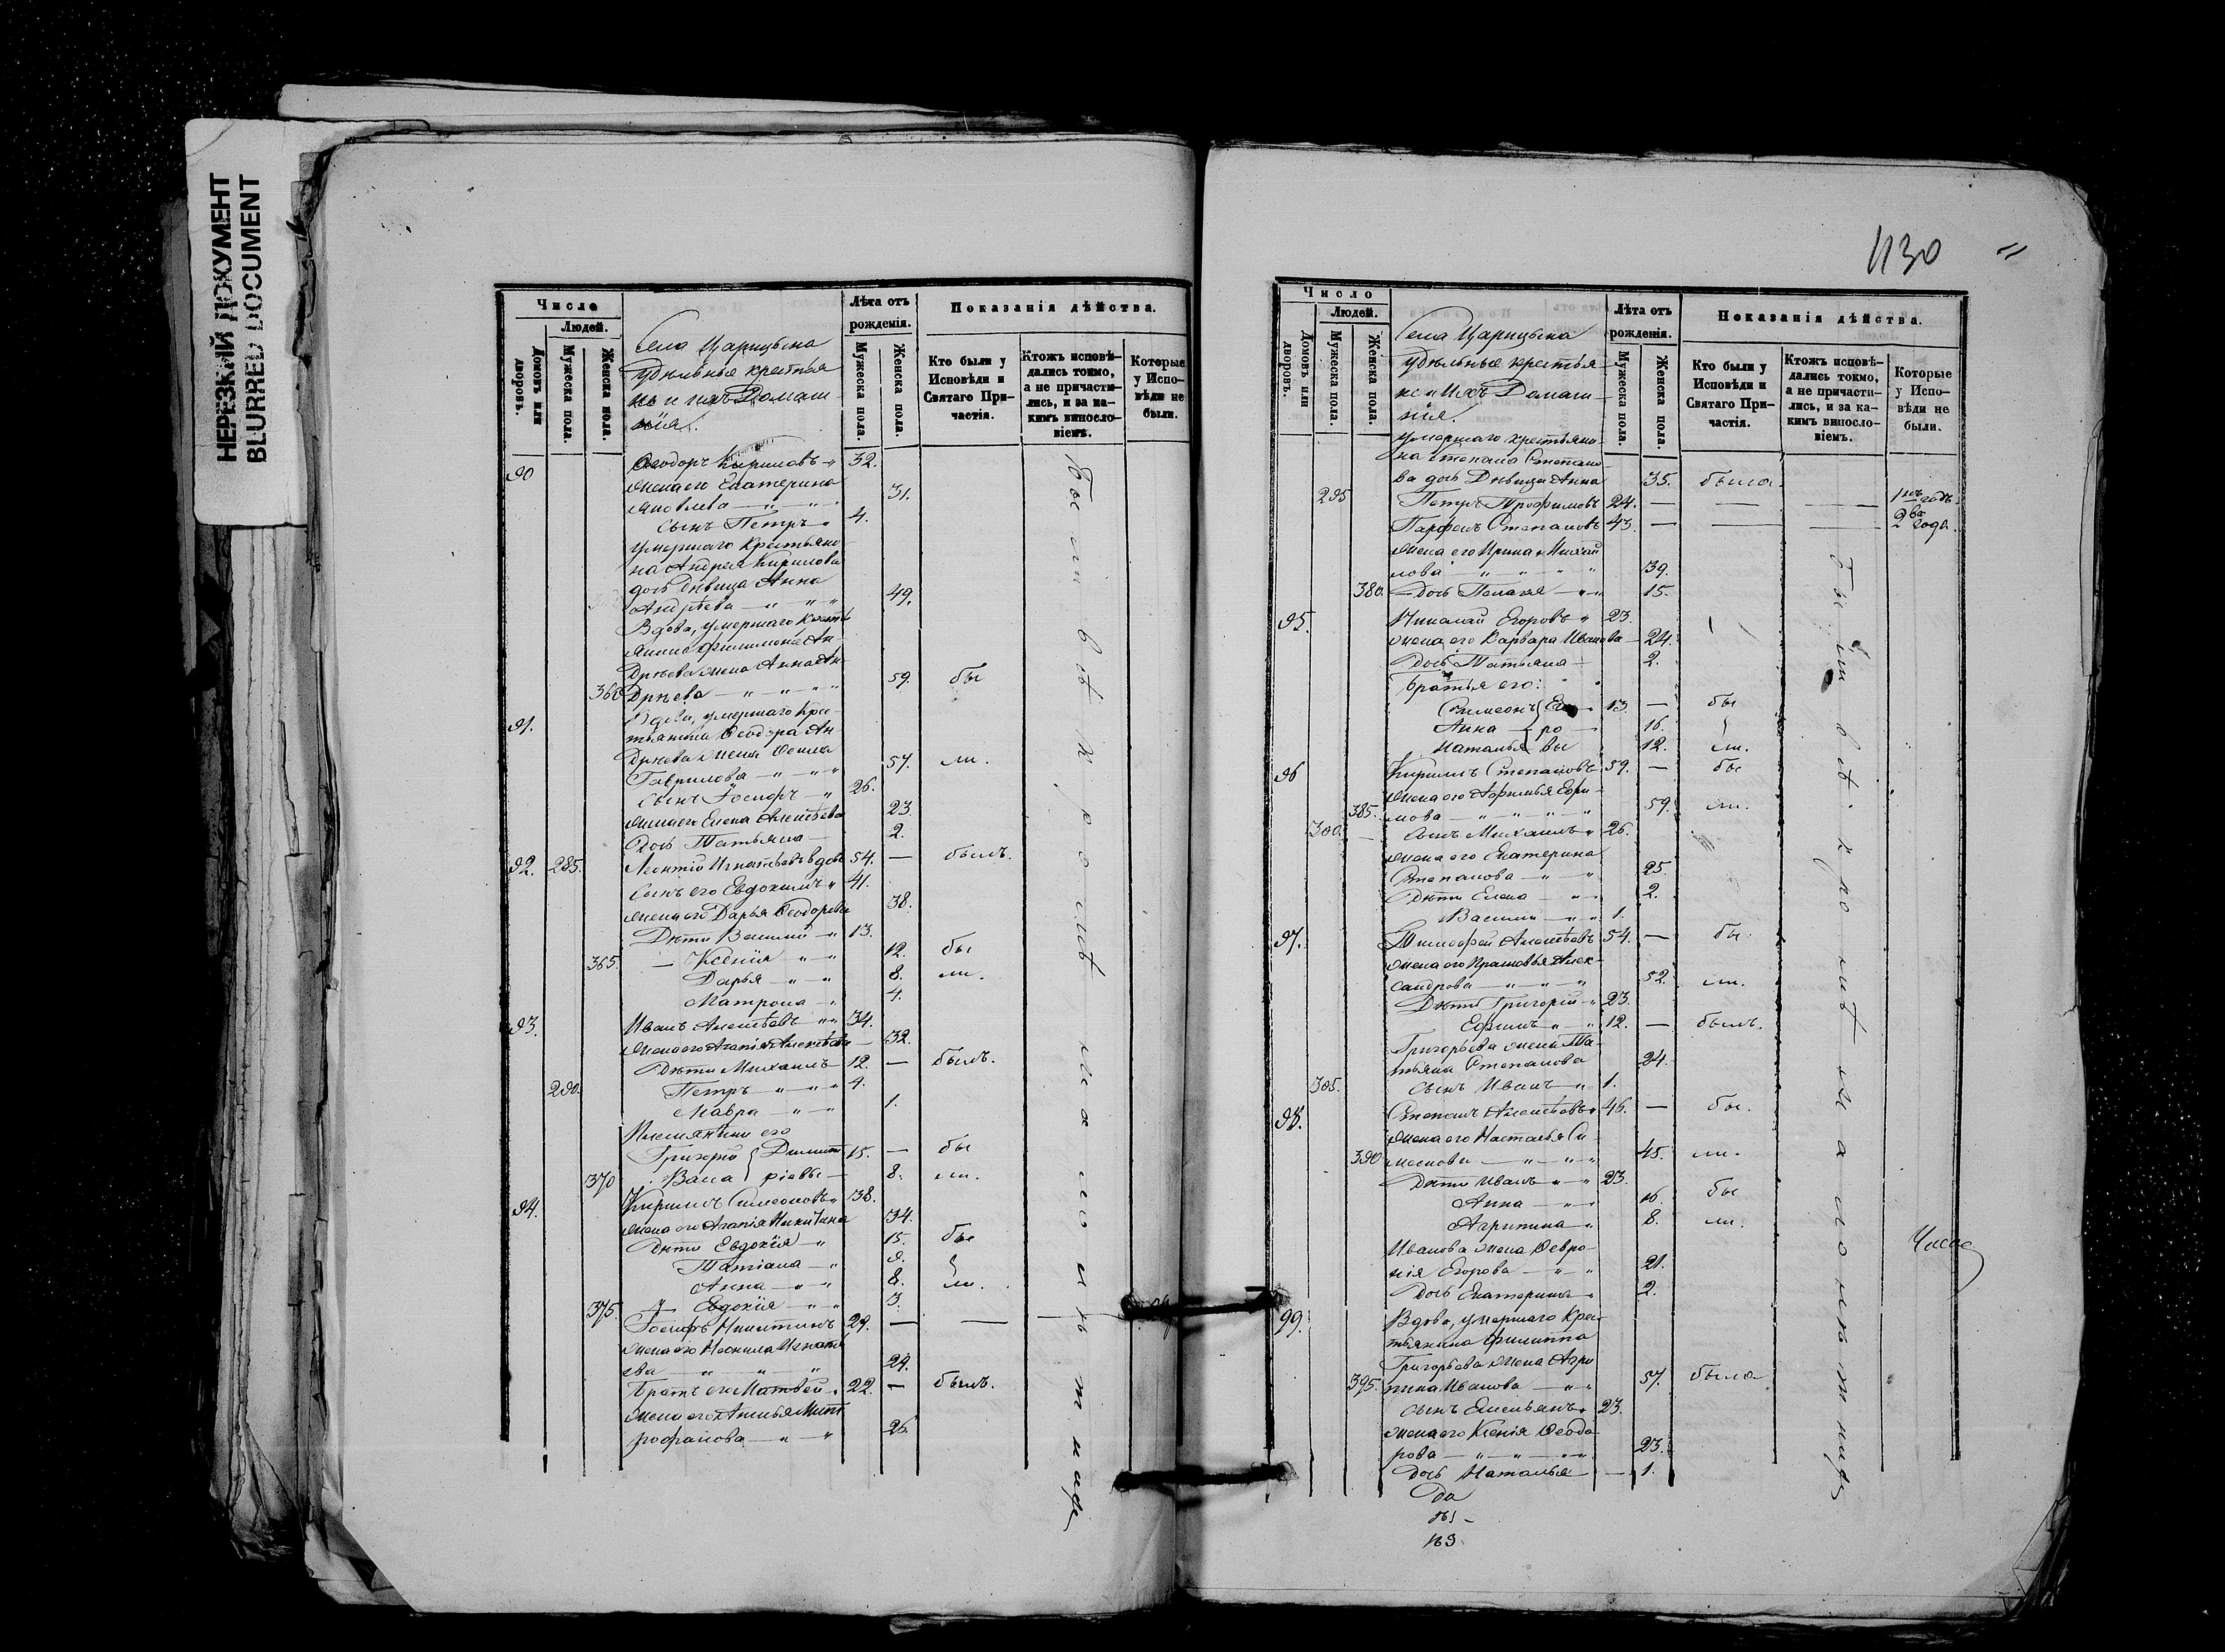 НЕРЕЗКИЙ ДОКУМЕНТ
BLURRED DOCUMENT
Число
Людей.
Домовъ или дворовъ.
Мужеска пола.
Женска пола.
Села Царицына
Удѣльные крестья
не и ихъ Домаш
нія.
Лѣта отъ рожденія.
Мужеска пола.
Женска пола.
Показанія дѣйства.
Кто были у Исповѣди и Святаго Причастія.
Ктожъ исповѣдались токмо, а не причастились, и за какимъ винословіемъ.
Которые у Исповѣди не были.
90 Ѳеодоръ Кириловъ 32.
жена его Екатерина
Яковлева 31.
сынъ Петръ 4.
умершаго крестьяни
на Андрея Кирилова
дочь Дѣвица Анна
Андрѣева 49.
Вдова, умершаго крест
янина Филимона Ан
дрѣева жена Анна Ан
360 дрѣева 59. бы
91. Вдова, умершаго кре
тьянина Ѳеодора Ан
дрѣева жена
Гаврилова 57. ли.
сынъ Іосифъ 26.
жена его Елена Алексѣева 23.
дочь Татьяна 2.
92. 285. Леонтій Игнатьевъ вдовъ 54. — былъ.
сынъ его Евдокимъ 41.
жена его Дарья Ѳеодорова 38.
Дѣти Василій 13.
365. Ксенія 12. бы
Дарья 8. ли.
Матрона 4.
93. Иванъ Алексѣевъ 34.
жена его Агапія Алексѣева 32.
Дѣти Михаилъ 12. — былъ.
290. Петръ 4.
Мавра 1.
Племянники его
Григорій } Димит 15. — бы
370 Васса } ріевы — 8. ли.
94. Кирилъ Симеоновъ 38.
жена его Агапія Никитина 34.
Дѣти Евдокія 15. бы
Татіана 9.
Анна 8. ли.
375. Евдокія 3.
Іосифъ Никитинъ 29. —
жена его Неонила Игнать
ева 29.
Братъ его Матвей 22. — былъ.
жена его Мит
рофанова 26.
Бы ли в ъ п р о с л ѣ
1130
Число
Людей.
Домовъ или дворовъ.
Мужеска пола.
Женска пола.
Села Царицына
Удѣльные крестья
не и Ихъ Домаш
нія.
Лѣта отъ рожденія.
Мужеска пола.
Женска пола.
Показанія дѣйства.
Кто были у Исповѣди и Святаго Причастія.
Ктожъ исповѣдались токмо, а не причастились, и за какимъ винословіемъ.
Которые у Исповѣди не были.
умершаго крестьяни
на Степана Степано
ва дочь Дѣвица Анна 35. была
295 Петръ Трофимовъ 24. — — — 1 годъ.
Парфенъ Степановъ 43. — — — 2 года.
жена его Ирина Михай
лова 39.
380. Дочь Пелагея 15.
95. Николай Егоровъ 23.
жена его Варвара Иванова 24.
Дочь Татьяна 2.
Братья его:
Симеонъ } Его 13. — бы
Анна } ро 16.
Наталья } вы 12. ли.
96 Кирилъ Степановъ 59. — бы
жена его Афимья
385. мова 59. ли.
300. сынъ Михаилъ 26.
жена его Екатерина
Степанова 25.
Дѣти Елена 2.
Василій 1.
97. Тимофей Алексѣевъ 54. — бы
жена его Прасковья Алек
сандрова 52. ли.
Дѣти Григорій 23.
Ефимъ 12. — былъ.
Григорьева жена Та
тьяна Степанова 24.
305. сынъ Иванъ 1.
98. Степанъ Алексѣевъ 46. — бы.
жена его Настасья Си
390 меонова 45. ли.
Дѣти Иванъ 23.
Анна 16 бы
Агрипина 8. ли.
Иванова жена Февро
нія Егорова 21.
Дочь Екатерина 2.
99. Вдова, умершаго Крес
тьянина Филиппа
Григорьева жена Агри
395. пина Иванова 57. была
сынъ Емельянъ 23.
жена его Ксенія Ѳеодо
рова 23.
дочь Наталья 1.
Число